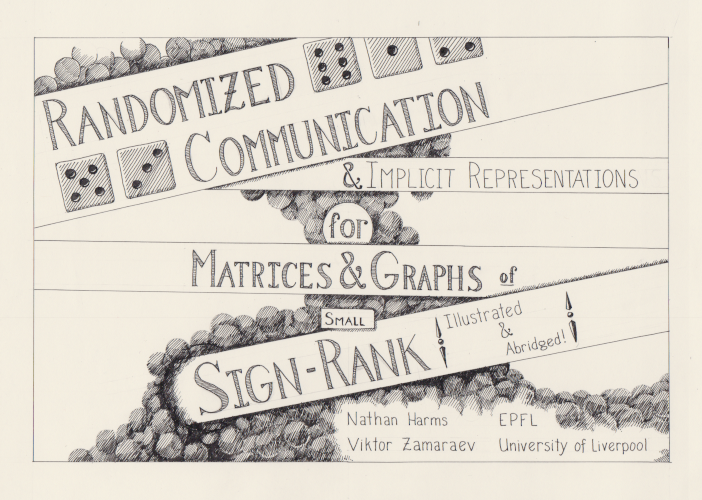 RANDOMIZED
COMMUNICATION
& IMPLICIT REPRESENTATIONS
for
MATRICES & GRAPHS of
SMALL
SIGN-RANK
Illustrated
&
Abridged!
Nathan Harms EPFL
Viktor Zamaraev University of Liverpool